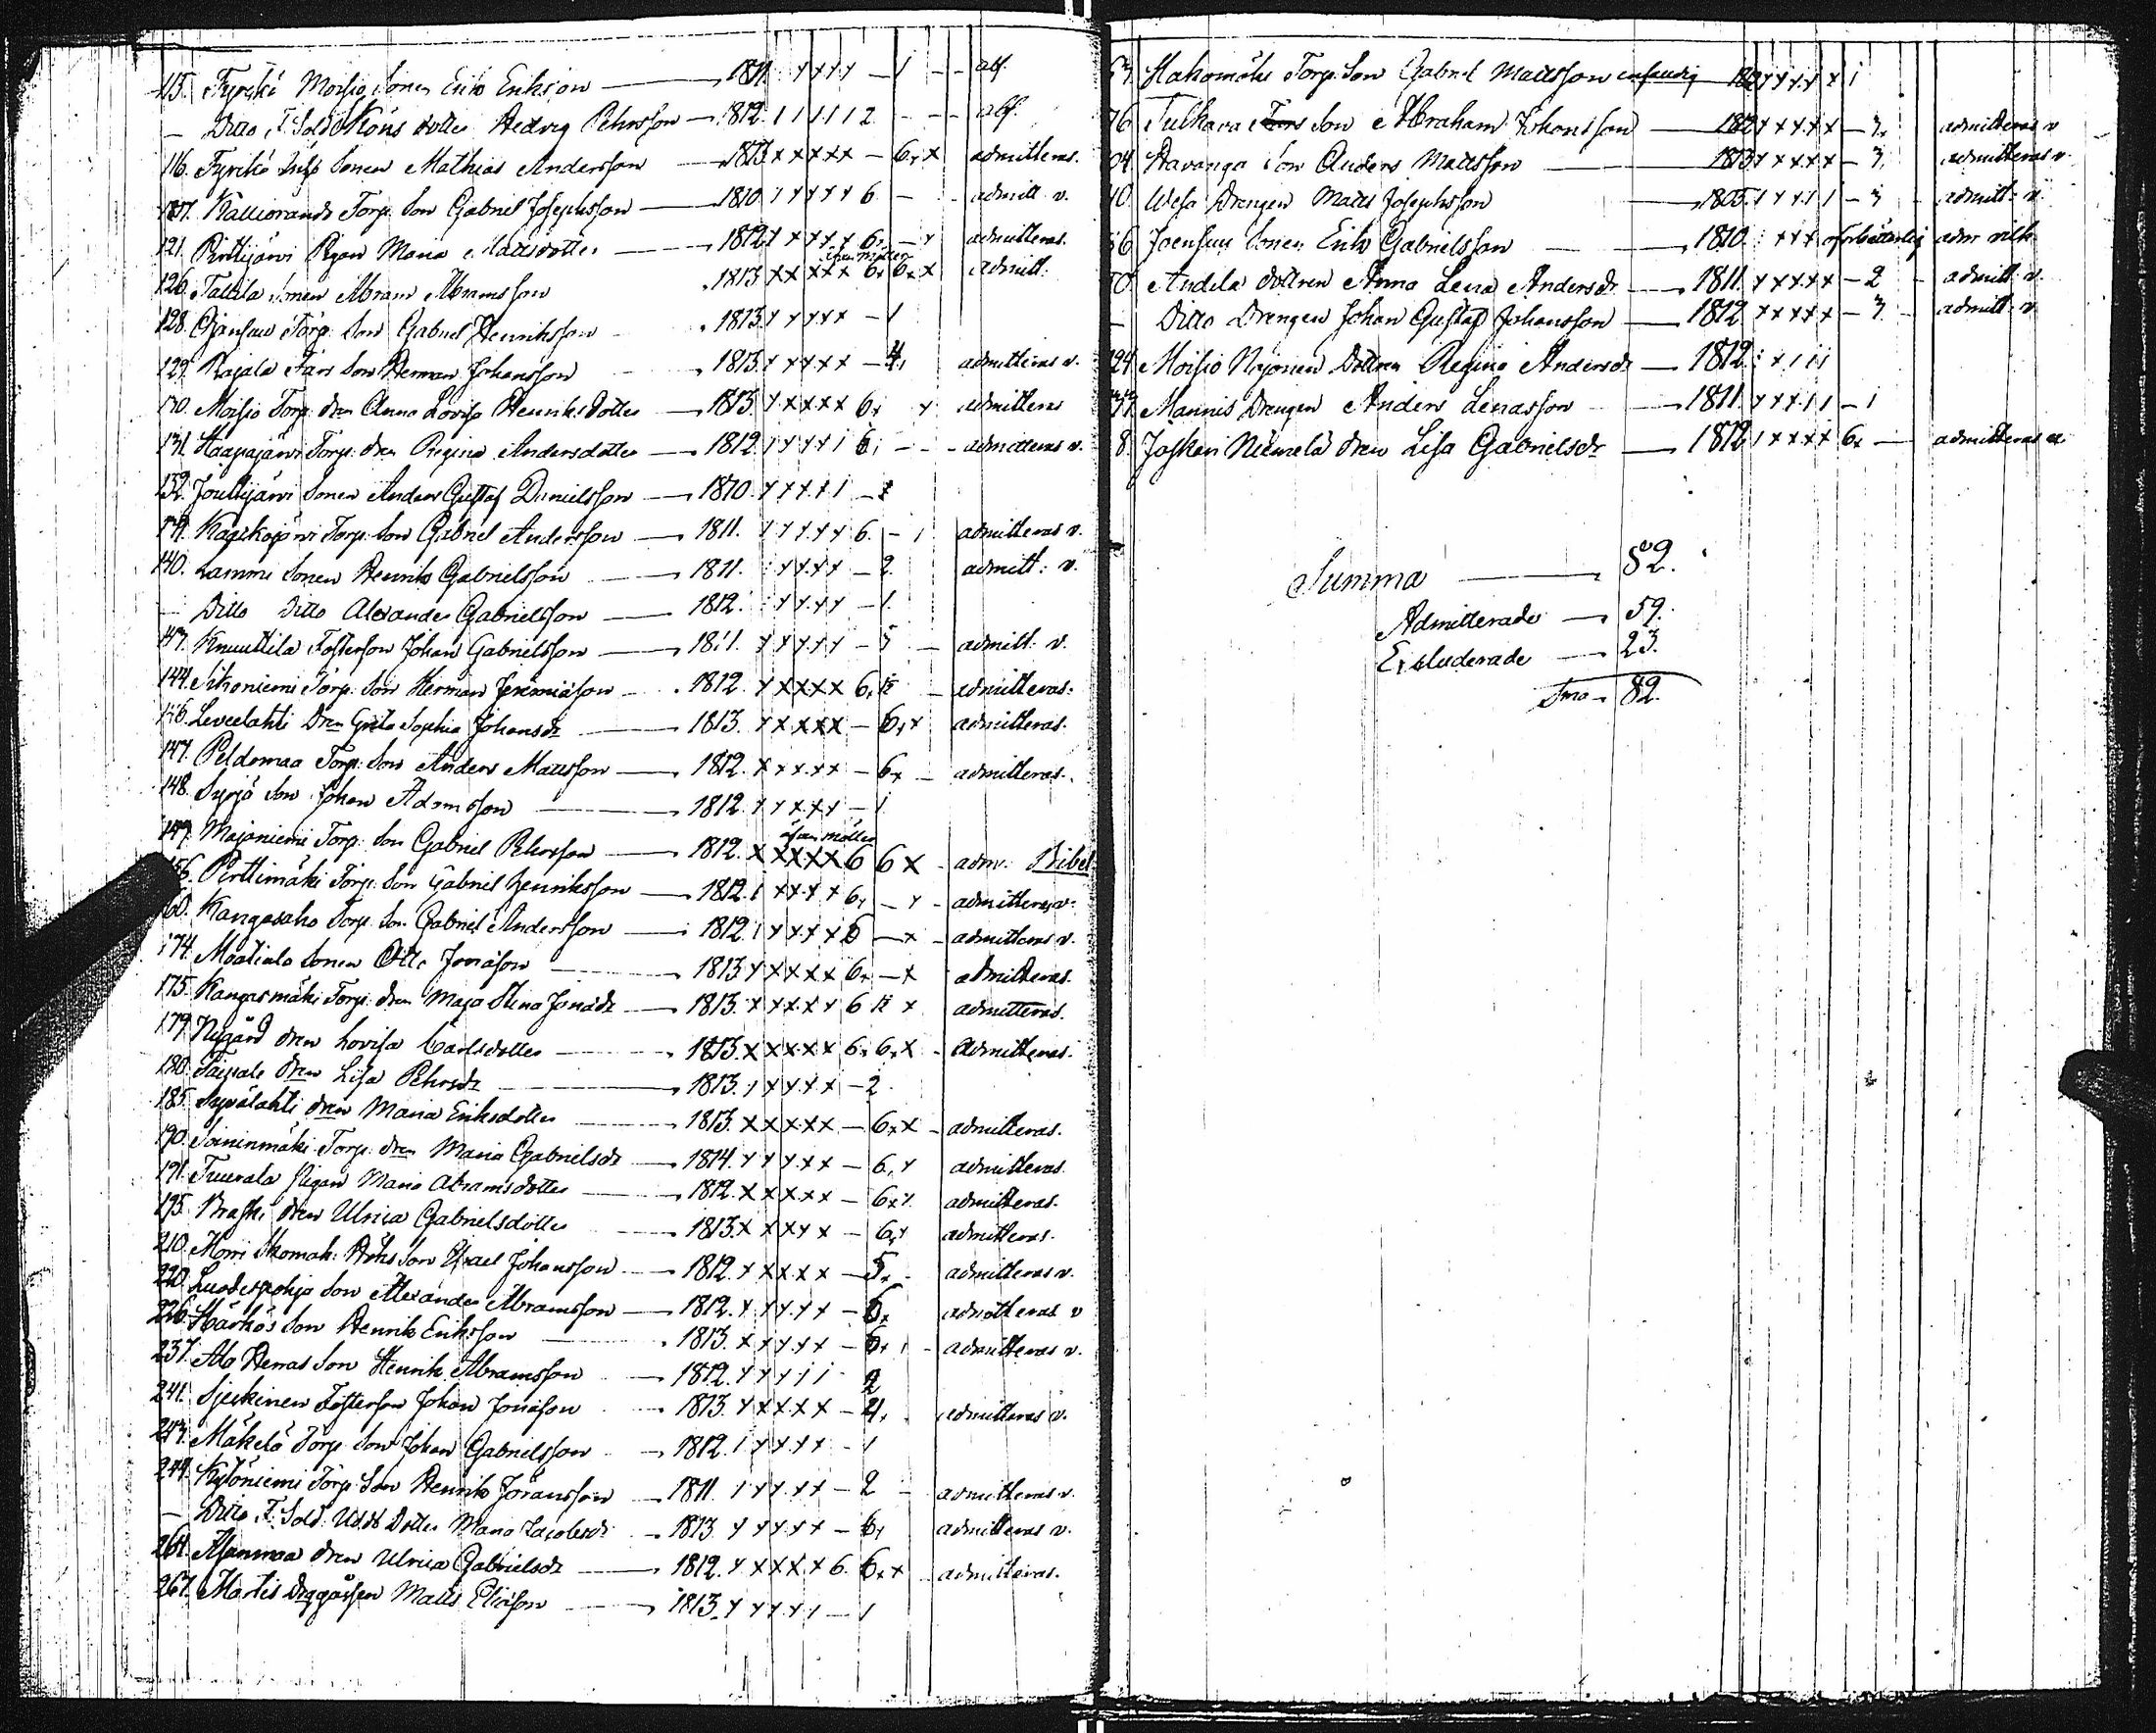 115. Fyrckö Moisio Sonen Erik Eriksson — 1811. y y y y — 1 - - abs.
— Ditto F. Sold. Köns dotter Hedvig Pehrsson — 1812. 1 1 1 1 1 2. - - abs.
116. Fyrckö Sonen Mathias Andersson — 1813 x x x x x — 6. x x admitteras.
Kalliorande Torp. Son Gabriel Josephsson — 1810. 1 y y y y 6 - - admitt. v.
121. Pirttijärvi Pigan Maria Mattsdotter — 1812. y x y y y 6. — y admitteras.
126. Tallila Sonen Abram Abramsson 1813 x x x x x 6. 6. x x Admitt:
128. Ojansuu Torp. Son Gabriel Henriksson 1813. y y y y x — 1
129. Rajala Fars Son Herman Johansson 1813. y y y x x — 4. admitteras v.
130. Moisio Torp. dren Anna Lovisa Henriksdotter — 1813. y x x x x 6. y admitteras
131. Haapajärvi Torp. dren Regina Andersdotter — 1812. 1 y y y 1 6. - - admitteras v.
132. Jouttijärvi Sonen Anders Gustaf Danielsson — 1810. y y y 1 1 —
139. Torp. Son Gabriel Andersson — 1811. 1 y y y y 6. - 1 admitteras v.
140. Lammi Sonen Henrik Gabrielsson — 1811. y y y y — 2. admitt: v.
— Ditto Ditto Alexander Gabrielsson — 1812. y y y y — 1.
Knuuttila Fosterson Johan Gabrielsson — 1811. y y y y y — 5 — admitt: v.
144. Sikoniemi Torp. Son Herman Jeremiasson — 1812. y x x x x 6. - admitteras.
146. Leveelahti Dren Greta Sophia Johansdr — 1813. y x x x x — 6. x y admitteras.
147. Peldomaa Torp. Son Anders Mattsson — 1812. x x x x x — 6. x — admitteras.
148. Syrjä Son Johan Adamsson — 1812. y y x x y — 1
149. Majaniemi Torp. Son Gabriel Pehrsson — 1812. x x x x x 6 6 x - adm: Bibel
156. Perttimäki Torp. Son Gabriel Henriksson — 1812. 1 x x y x 6. — y - admitteras v.
160. Kangasaho Torp. Son Gabriel Andersson — 1812. 1 y x y x 6 — x - admitteras v.
174. Määttälä Sonen Otto Jonasson — 1813 y x x x x 6. — x admitteras.
175. Kangasmäki Torp. dren Maja Stina Jonasdr — 1813. x y x x y 6 x admitteras.
179. Nygård dren Lovisa Carlsdotter — 1813. x x x x x 6. 6. x - Admitteras.
180. Taipale dren Lisa Pehrsdr — 1813. 1 y y y x — 2.
185. Sysälahti dren Maria Eriksdotter — 1813. x x x x x — 6. x x - admitteras.
190. Soininmäki Torp. dren Maria Gabrielsdr — 1814. y y y x x — 6. y admitteras.
191. Tuurala Pigan Maria Abramsdotter — 1812. x x x x x — 6. x y. admitteras.
195. Braski dren Ulrica Gabrielsdotter — 1813. x x x y x — 6. y admitteras.
210. Skomak. Son Israel Johansson — 1812. y x x x x — 5. - admitteras v.
220. Luodespohja Son Alexander Abramsson — 1812. y x y y x — 6. admitteras v
226. Härkös Son Henrik Eriksson — 1813. x y y x x — 6. 1 - admitteras v.
237. Ala Herras Son Henrik Abramsson — 1812. y y y 1 1 - 2
241. Sjeckinen Fosterson Johan Jonasson 1813. y x x x x — 4. admitteras v.
243. Mäkelä Torp. Son Johan Gabrielsson — 1812. 1 y y y y — 1
244. Kytöniemi Torp. Son Henrik Göransson — 1811. 1 y y x x — 2 - admitteras v.
— Ditto F. Sold. Udds Dotter Maria Jacobsdr — 1813. y y y x x — 6. admitteras v.
264. Alamaa dren Ulrica Gabrielsdr — 1812. y x x x x 6. 6. x x admitteras.
267. Martis Matts Eliasson — 1813. y y y y 1 — 1
Hakomäki Torp. Son Gabriel Mattsson
76 Tulkava Son Abraham Johansson — 1812 y x x x x — 3. admitteras v
04. Havanga Son Anders Mattsson — 1813 y x x x x — 3. admitteras v.
40. Wesa Drengen Matts Josephsson — 1805. 1 y y 1 1 — 3 admitt: v.
56 Joensuu Sonen Erik Gabrielsson — 1810. x x x oförbätterlig adm. vilk.
70. Andila dottren Anna Lena Andersdr — 1811. y x x x x — 2 - admitt: v.
— Ditto Drengen Johan Gustaf Johansson — 1812. x x x x x — 3. - admitt: v.
94. Moisio Dottren Regina Andersdr — 1812. x 1 1 1
Mannis Drengen Anders Lenasson — 1811. y y x 1 1 — 1
8. Josken Niemelä dren Lisa Gabrielsdr — 1812. 1 x x x x 6. — admitteras v.
Summa — 82.
Admitterade — 59.
Excluderade — 23.
Sma — 82.